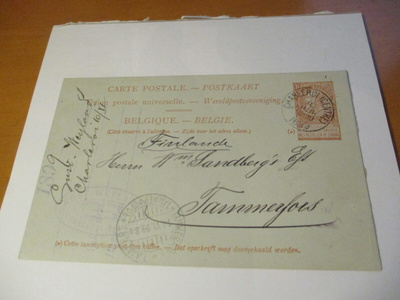 CARTE POSTALE. — POSTKAART
Union postale universelle. — Wereldpostvereeniging
BELGIQUE. — BELGIE.
(Côté réservé à l'adresse. — Zijde voor het adres alleen.)
CHARLEROI (CENTRE)
Finlande
Herrn Wm Sandberg's Eft
Tammerfors
1899
Gust.
Charleroi
(a) Cette inscription peut être biffée. — Dit opschrift mag doorgehaald worden.